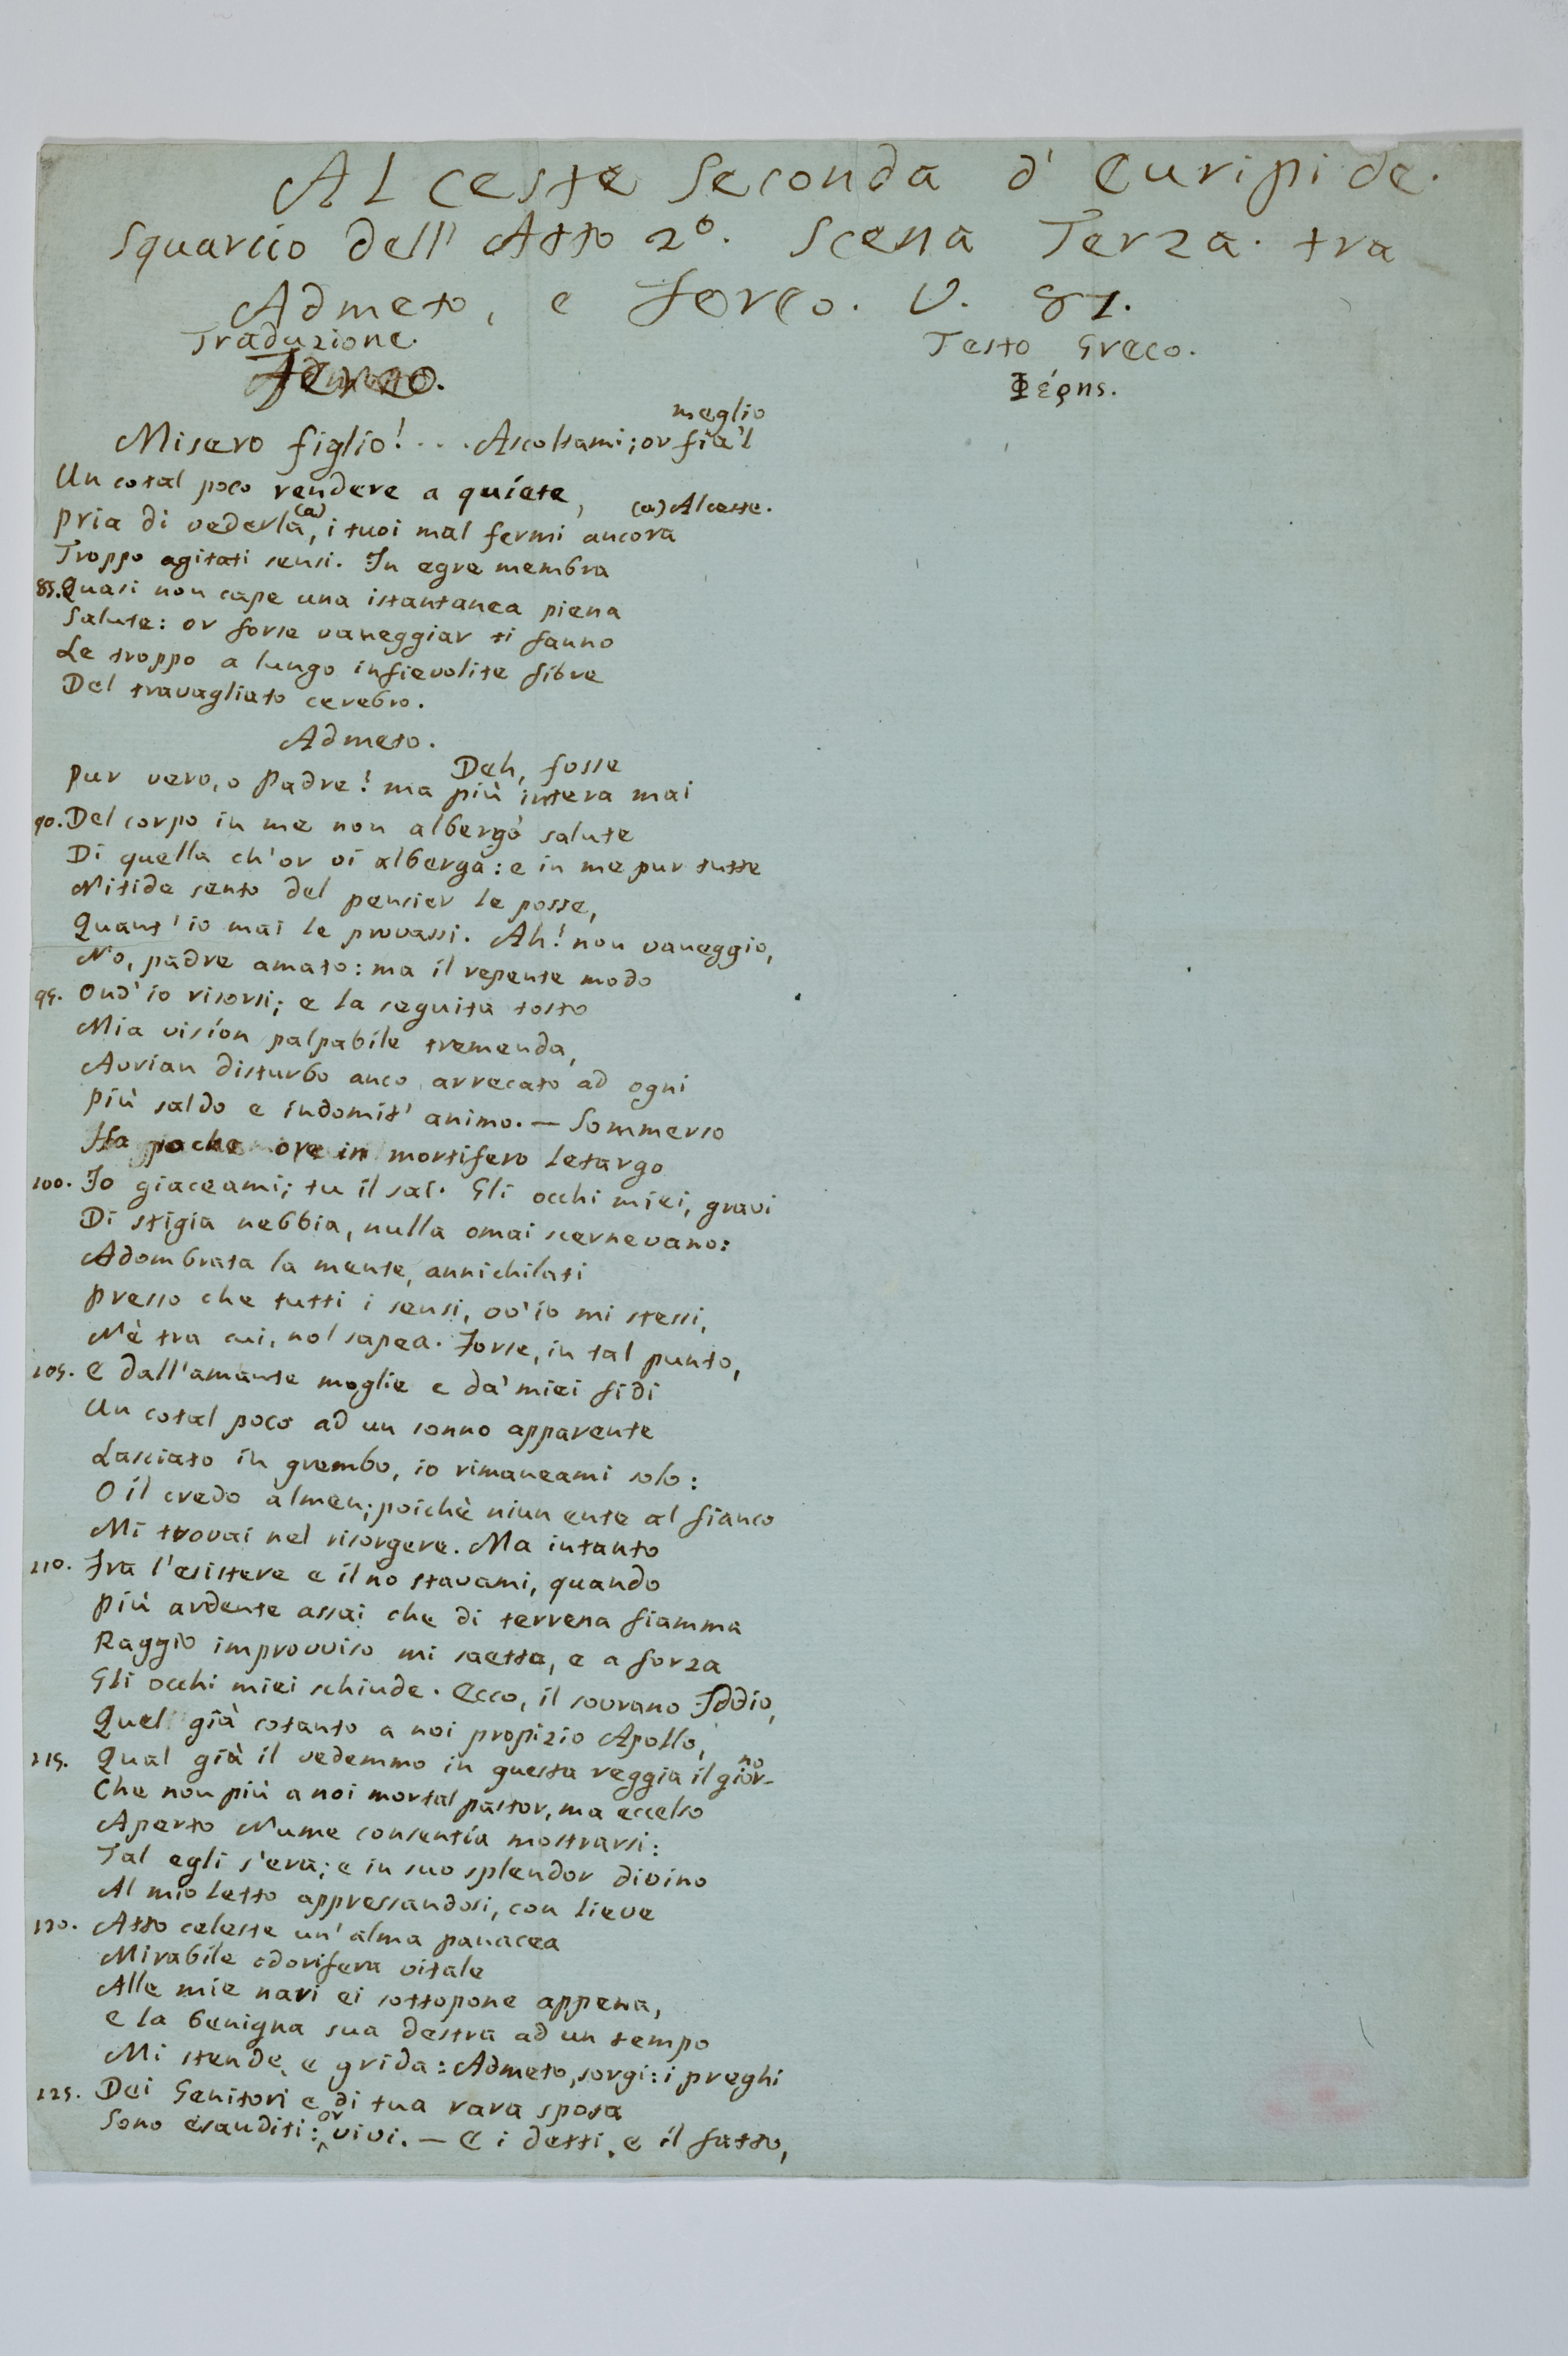 Alceste Seconda d' Euripide.
Squarcio dell' Atto 2º. Scena Terza. tra
Admeto, e Fereo. V. 81.
Traduzione.
Testo Greco.
Fereo.
Φέρης.
meglio
Misero figlio! . . . Ascoltami; or fia'l
Un cotal poco rendere a quíete,
(a) Alceste.
pria di vederla(a), i tuoi mal fermi ancora
Troppo agitati sensi. In egre membra
85. Quasi non cape una istantanea piena
Salute: or forse vaneggiar ti fanno
Le troppo a lungo infievolite fibre
Del travagliato cerebro.
Admeto.
Deh, fosse
pur vero, o Padre! ma più intera mai
90. Del corpo in me non albergò salute
Di quella ch'or vi alberga: e in me pur tutte
Nitide sento del pensier le posse,
Quant'io mai le provassi. Ah! non vaneggio,
No, padre amato: ma il repente modo
95. Ond'io risorsi; e la seguita tosto
Mia visíon palpabile tremenda,
Avrian disturbo anco arrecato ad ogni
più saldo e indomit' animo. — Sommerso
Ha poche ore in mortifero letargo
100. Io giaceami; tu il sai. Gli occhi miei, gravi
Di stigia nebbia, nulla omai scernevano:
Adombrata la mente, annichilati
presso che tutti i sensi, ov'io mi stessi,
Nè tra cui, nol sapea. Forse, in tal punto,
105. E dall'amante moglie e da' miei fidi
Un cotal poco ad un sonno apparente
Lasciato in grembo, io rimaneami solo:
O il credo almen; poichè niun ente al fianco
Mi trovai nel risorgere. Ma intanto
110. Fra l'esistere e il no stavami, quando
più ardente assai che di terrena fiamma
Raggio improvviso mi saetta, e a forza
Gli occhi miei schiude. Ecco, il sovrano Iddio,
Quel già cotanto a noi propizio Apollo,
115. Qual già il vedemmo in questa reggia il gior-no
Che non più a noi mortal pastor, ma eccelso
Aperto Nume consentía mostrarsi:
Tal egli s'era; e in suo splendor divino
Al mio letto appressandosi, con lieve
120. Atto celeste un' alma panacea
Mirabile odorifera vitale
Alle mie nari ei sottopone appena,
E la benigna sua destra ad un tempo
Mi stende, e grida: Admeto, sorgi: i preghi
125. Dei Genitori e di tua rara sposa
Sono esauditi: or vivi. — E i detti, e il fatto,